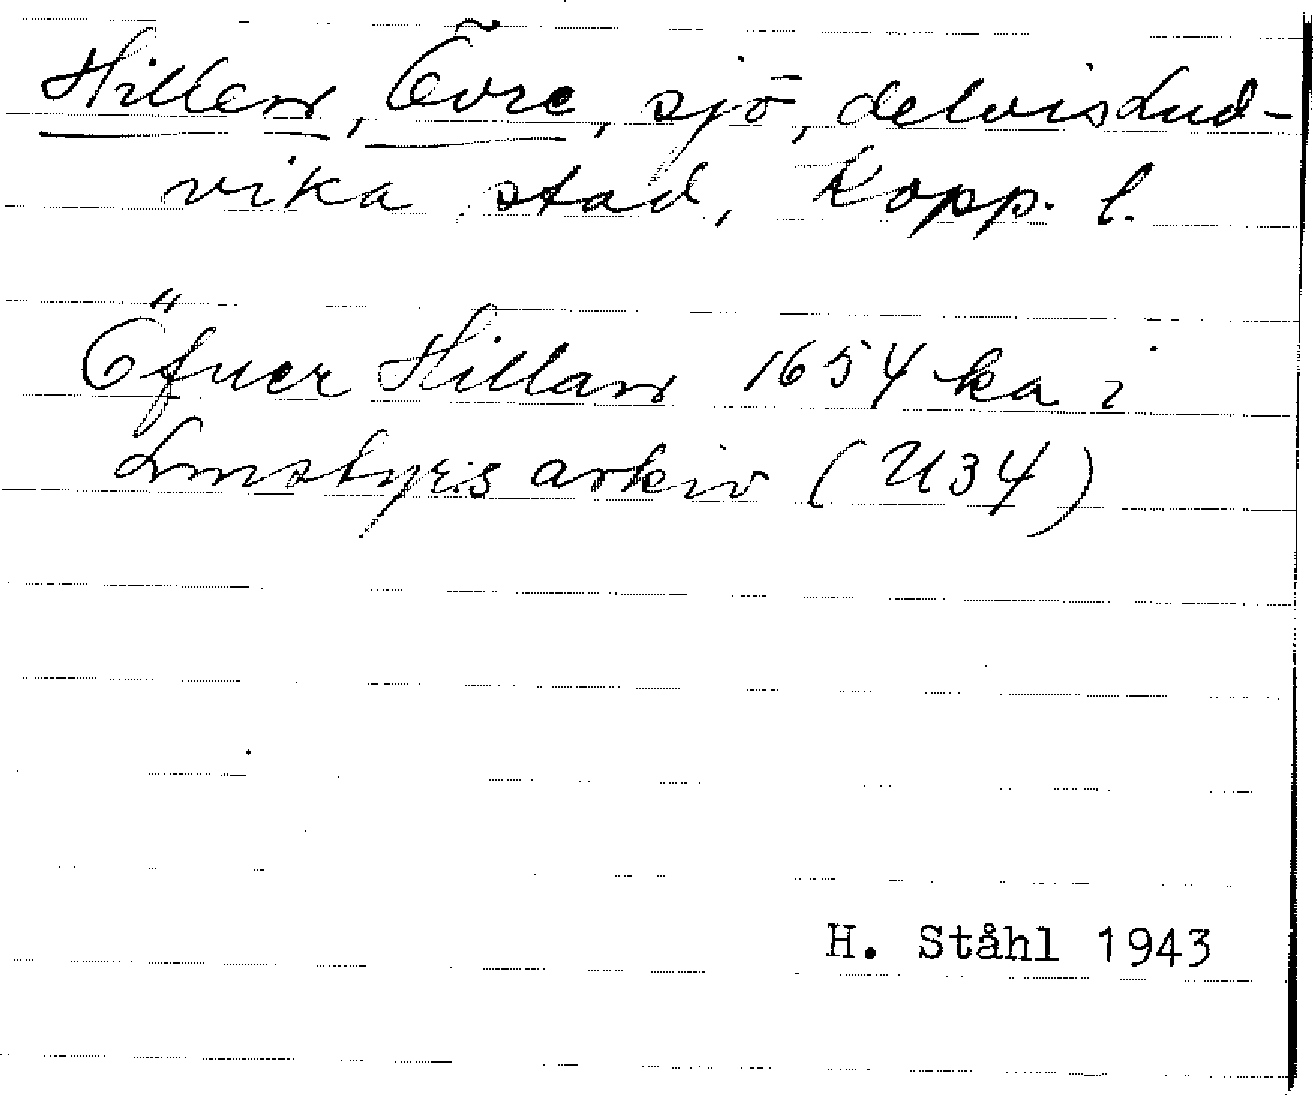 Hillen, Övre, sjö, delvis Lud-
vika stad, Kopp. l.
Öfuer Hillan 1654 ka i
Lmstyrs arkiv (U34)
H. Ståhl 1943